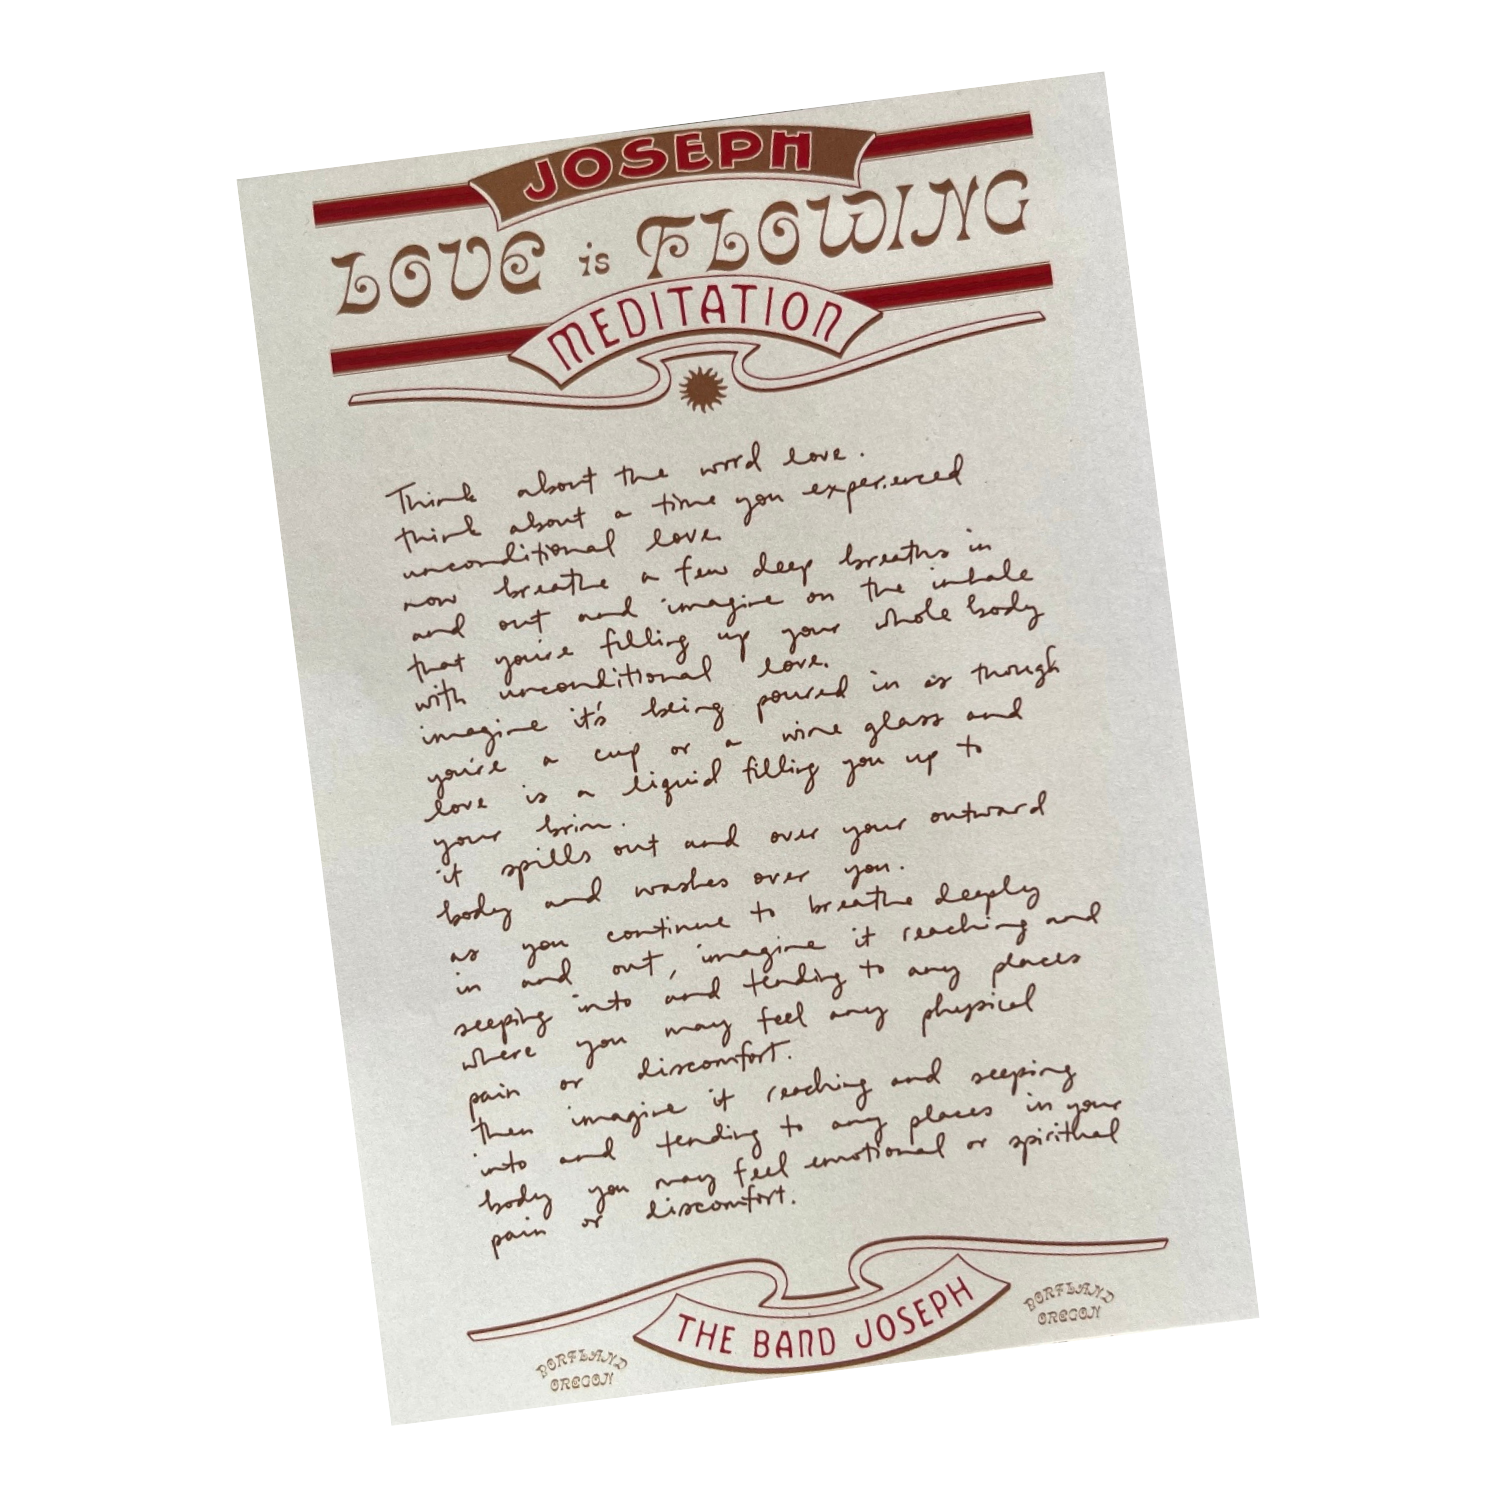 JOSEPH
LOVE is FLOWING
MEDITATION
Think about the word love.
think about a time you experienced
unconditional love.
now breathe a few deep breaths in
and out and imagine on the inhale
that you're filling up your whole body
with unconditional love.
imagine it's being poured in as though
you're a cup or a wine glass and
love is a liquid filling you up to
your brim.
it spills out and over your outward
body and washes over you.
as you continue to breathe deeply
in and out, imagine it reaching and
seeping into and tending to any places
where you may feel any physical
pain or discomfort.
then imagine it reaching and seeping
into and tending to any places in your
body you may feel emotional or spiritual
pain or discomfort.
THE BAND JOSEPH
PORTLAND
OREGON
PORTLAND
OREGON